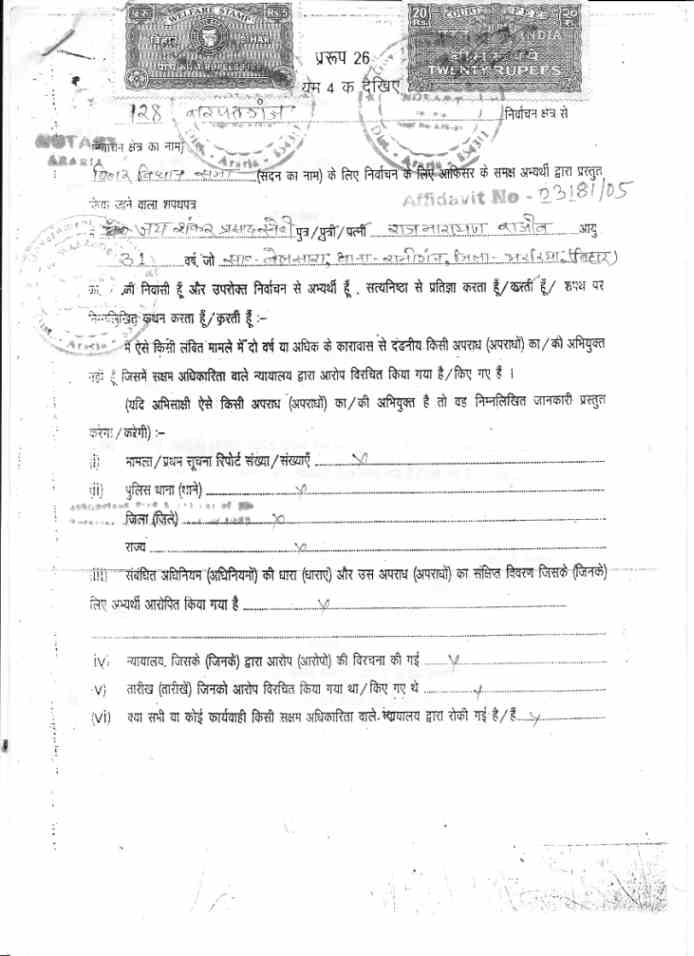 WELFARE STAMP
20 Rs. COURT 20
INDIA
बीस रुपये
TWENTY RUPEES
प्ररूप 26
4 क देखिए
128 निर्वाचन क्षेत्र से
NOTARY
ARARIA
क्षेत्र का नाम)
बिहार विधान सभा (सदन का नाम) के लिए निर्वाचन के लिए आफिसर के समक्ष अभ्यर्थी द्वारा प्रस्तुत
Affidavit No - 23181/05
जाने वाला शपथपत्र
जय शंकर प्रसाद पुत्र/पुत्री/पत्नी राजनारायण आयु
31 वर्ष, जो थाना-रानीगंज, जिला-अररिया (बिहार)
का/की निवासी हूँ और उपरोक्त निर्वाचन से अभ्यर्थी हूँ, सत्यनिष्ठा से प्रतिज्ञा करता हूँ/करती हूँ/ शपथ पर
निम्नलिखित कथन करता हूँ/करती हूँ :–
मैं ऐसे किसी लंबित मामले में दो वर्ष या अधिक के कारावास से दंडनीय किसी अपराध (अपराधों) का/की अभियुक्त
नहीं हूँ जिसमें सक्षम अधिकारिता वाले न्यायालय द्वारा आरोप विरचित किया गया है/किए गए हैं ।
(यदि अभिसाक्षी ऐसे किसी अपराध (अपराधों) का/की अभियुक्त है तो वह निम्नलिखित जानकारी प्रस्तुत
करेगा/करेगी) :–
(i) मामला/प्रथम सूचना रिपोर्ट संख्या/संख्याएँ ........ X
(ii) पुलिस थाना (थाने) ........ X
जिला (जिले) ........ X
राज्य ........ X
(iii) संबंधित अधिनियम (अधिनियमों) की धारा (धाराएँ) और उस अपराध (अपराधों) का संक्षिप्त विवरण जिसके (जिनके)
लिए अभ्यर्थी आरोपित किया गया है ........ X
(iv) न्यायालय, जिसके (जिनके) द्वारा आरोप (आरोपों) की विरचना की गई ........ X
(v) तारीख (तारीखें) जिनको आरोप विरचित किया गया था/किए गए थे ........ X
(vi) क्या सभी या कोई कार्यवाही किसी सक्षम अधिकारिता वाले न्यायालय द्वारा रोकी गई है/हैं ........ X